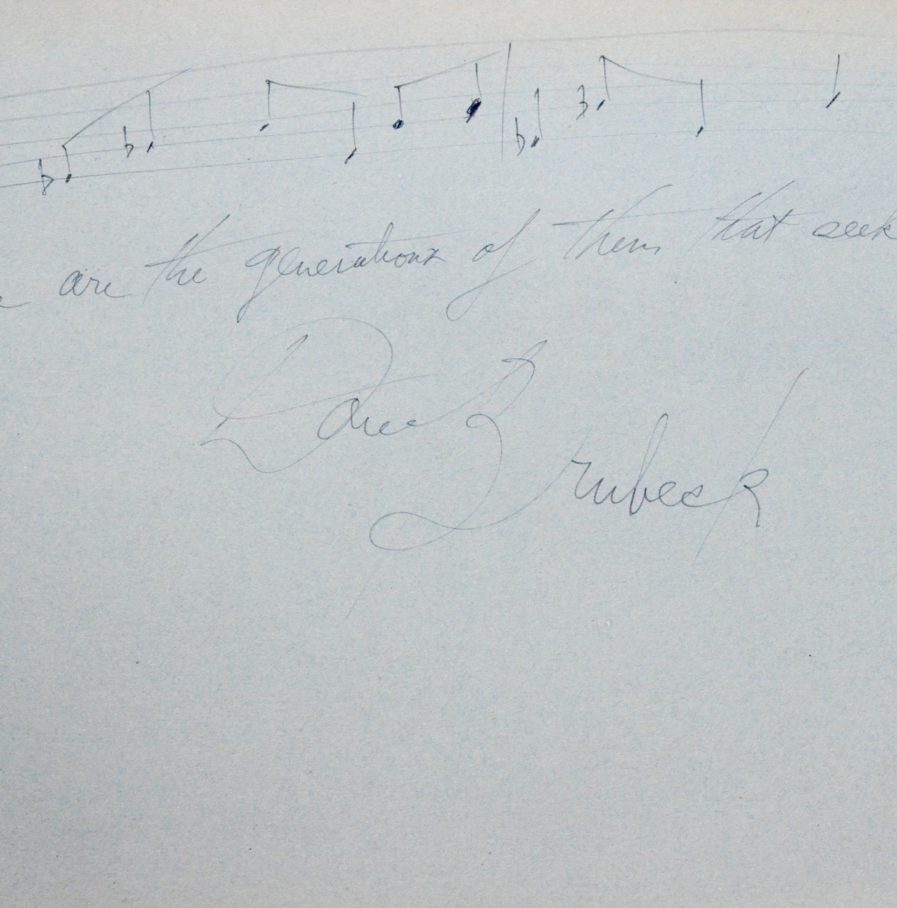 are the generations of them that seek
Dave Brubeck